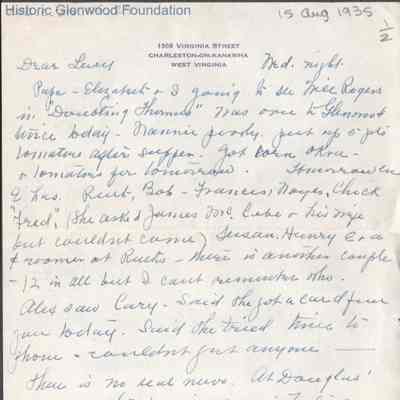 Historic Glenwood Foundation
15 Aug 1935
1/2
1509 VIRGINIA STREET
CHARLESTON-ON-KANAWHA
WEST VIRGINIA
Dear Lewis Wed. night.
Papa - Elizabeth & I going to see Will Rogers
in "Doubting Thomas" Was over to Glenwood
twice today - Nannie put up 5 pts
tomatoes after supper. Got corn okra -
& tomatoes for tomorrow. Tomorrow
E has. Ruth, Bob - Frances, Noyes, Chick
"Fred", (She asked James Mc. Cabe & his wife
but couldnt come) Susan. Henry
& roomer at Ruth's - there is another couple
- 12 in all but I cant remember who.
Alex saw Cary. Said she got a card from
you today. Said she tried twice to
phone & couldnt get anyone
There is no real news. At Douglas'